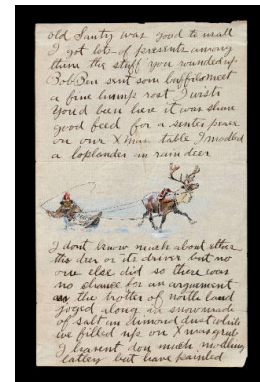 old Santy was good to us all
I got lots of presents among
them the stuff you rounded up
Bob Ben sent som buffilo meet
a fine hump rost I wish
You'd been here it was shure
good feed for a senter piece
on our Xmas table I modled
a loplander in rain deer
I dont know much about ether
this deer or its driver but no
one else did so there was
no chance for an arguement
as the trotter of north land
joged along in snow made
of salt an dimond dust while
we filled up on Xmas grub
I havent don much modling
lattely but have painted